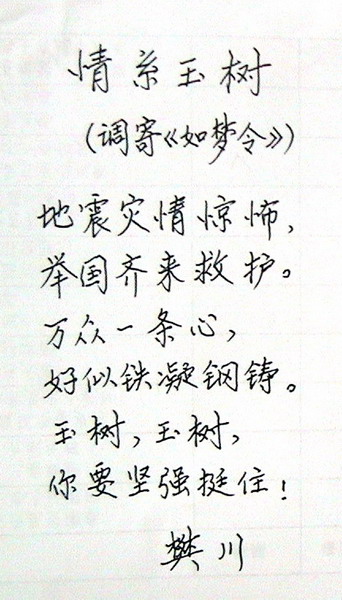 情系玉树
(调寄《如梦令》)
地震灾情惊怖,
举国齐来救护。
万众一条心,
好似铁凝钢铸。
玉树,玉树,
你要坚强挺住!
樊川